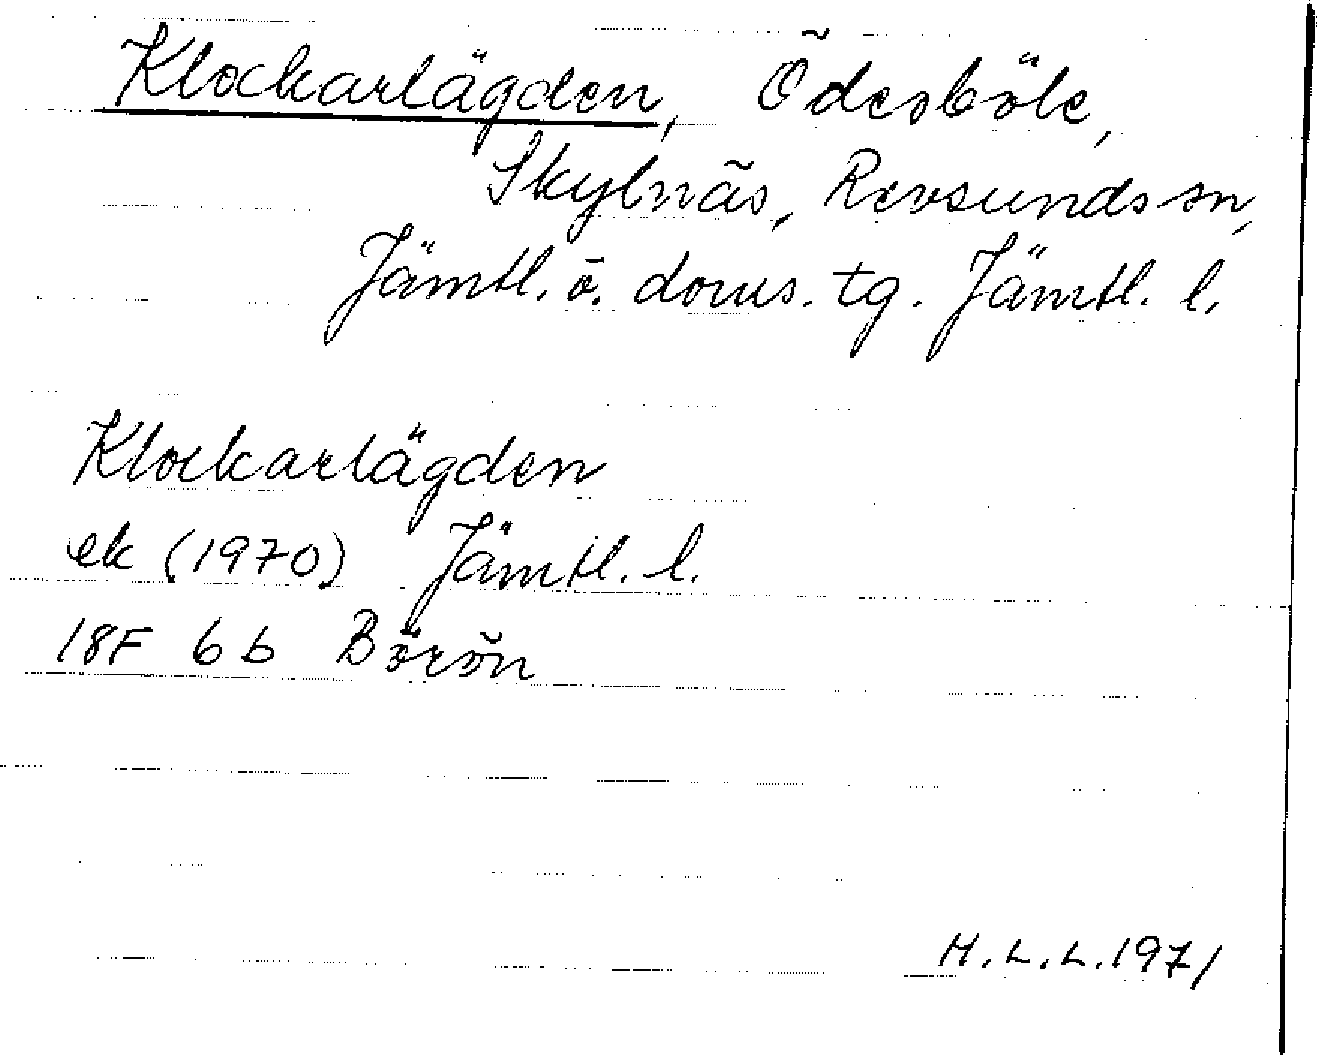 Klockarlägden, Ödesböle,
Skylnäs, Revsunds sn,
Jämtl. ö. doms. tg. Jämtl. l.
Klockarlägden
ek (1970) Jämtl. l.
18F 6b Börön
H.L.L. 1971